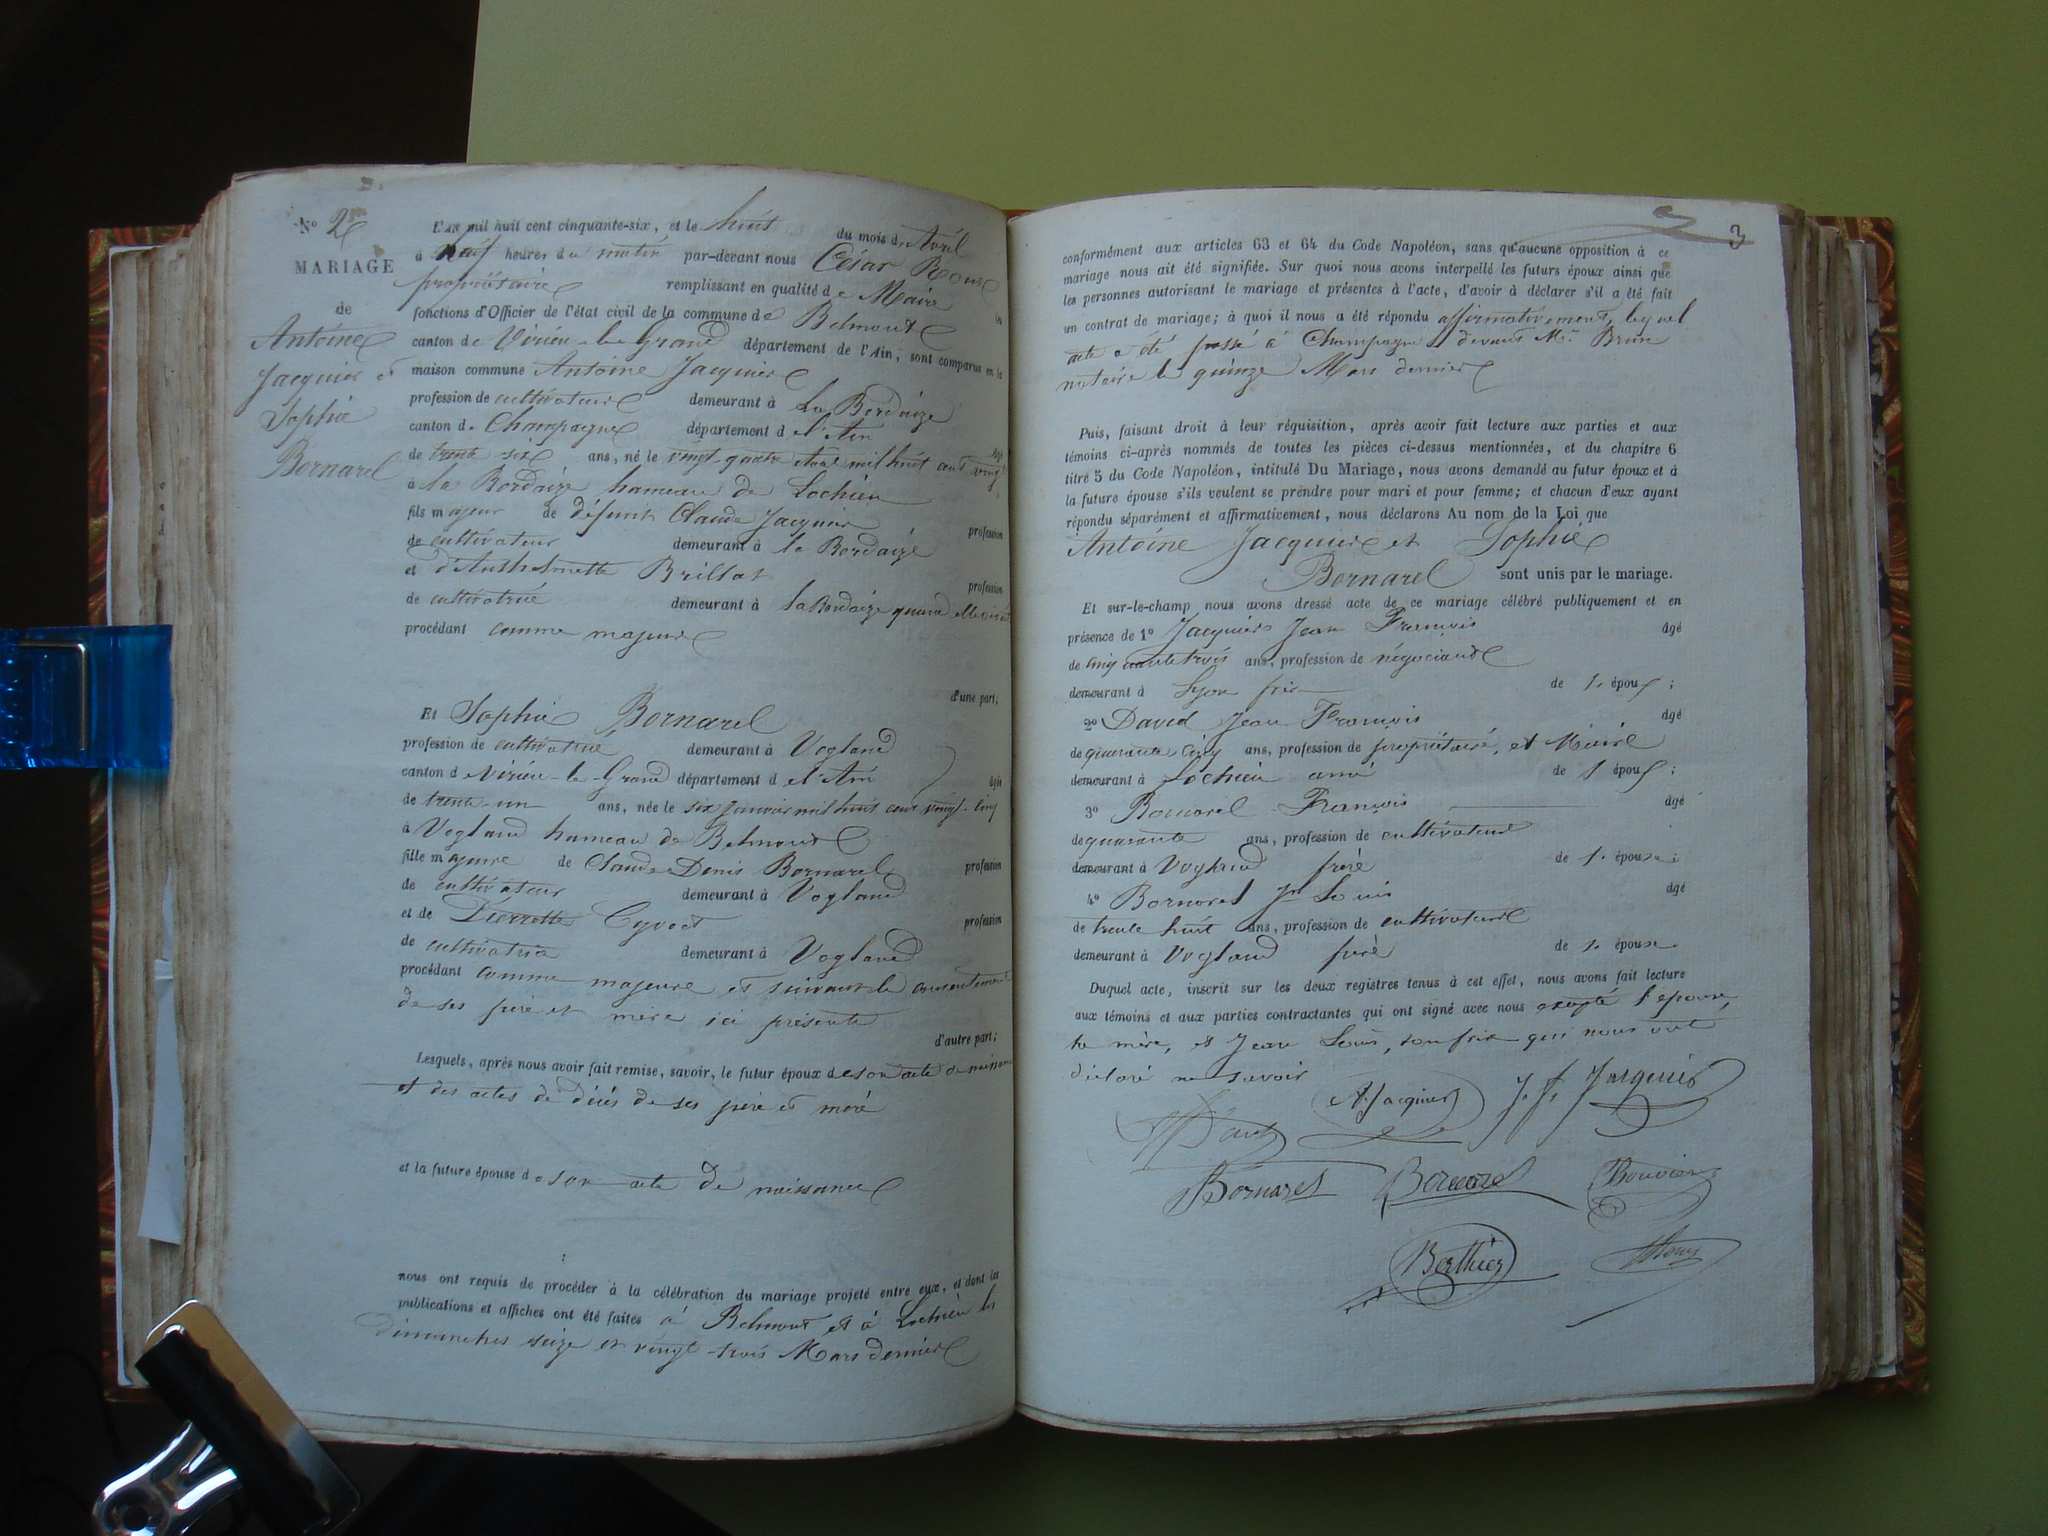 N° 2
MARIAGE
de
Antoine
Jacquier et
Sophie
Bornarel
L'AN mil huit cent cinquante-six, et le huit du mois d'Avril
à neuf heures du matin par-devant nous César
propriétaire remplissant en qualité de Maire les
fonctions d'Officier de l'état civil de la commune de Belmont
canton de Virieu-le-Grand département de l'Ain, sont comparus en la
maison commune Antoine Jacquier
profession de cultivateur demeurant à La Bordaize
canton de Champagne département de l'Ain âgé
de trente six ans, né le vingt-quatre mil huit cent vingt
à la Bordaize hameau de Lochieu
fils majeur de défunt Claude Jacquier profession
de cultivateur demeurant à la Bordaize
et d'Anthelmette Brillat profession
de cultivatrice demeurant à la Bordaize quand elle vivait
procédant comme majeur
d'une part;
Et Sophie Bornarel
profession de cultivatrice demeurant à Vogland
canton de Virieu-le-Grand département de l'Ain âgée
de trente-un ans, née le six janvier mil huit cent vingt-cinq
à Vogland hameau de Belmont
fille majeure de Claude Denis Bornarel profession
de cultivateur demeurant à Vogland
et de Pierrette Cyvoct profession
de cultivatrice demeurant à Vogland
procédant comme majeure et suivant le consentement
de ses père et mère ici présents
d'autre part;
Lesquels, après nous avoir fait remise, savoir, le futur époux de son acte de naissance
et des actes de décès de ses père et mère
et la future épouse de son acte de naissance
nous ont requis de procéder à la célébration du mariage projeté entre eux, et dont les
publications et affiches ont été faites à Belmont et à Lochieu les
dimanches seize et vingt-trois Mars dernier
3
conformément aux articles 63 et 64 du Code Napoléon, sans qu'aucune opposition à ce
mariage nous ait été signifiée. Sur quoi nous avons interpellé les futurs époux ainsi que
les personnes autorisant le mariage et présentes à l'acte, d'avoir à déclarer s'il a été fait
un contrat de mariage; à quoi il nous a été répondu affirmativement, lequel
acte a été passé à Champagne devant Me Brun
notaire le quinze Mars dernier
Puis, faisant droit à leur réquisition, après avoir fait lecture aux parties et aux
témoins ci-après nommés de toutes les pièces ci-dessus mentionnées, et du chapitre 6
titre 5 du Code Napoléon, intitulé Du Mariage, nous avons demandé au futur époux et à
la future épouse s'ils veulent se prendre pour mari et pour femme; et chacun d'eux ayant
répondu séparément et affirmativement, nous déclarons Au nom de la Loi que
Antoine Jacquier et Sophie
Bornarel sont unis par le mariage.
Et sur-le-champ nous avons dressé acte de ce mariage célébré publiquement et en
présence de 1° Jacquier Jean François âgé
de cinquante trois ans, profession de négociant
demeurant à Lyon frère de l'époux;
2° David Jean François âgé
de quarante cinq ans, profession de propriétaire, et Maire
demeurant à Lochieu ami de l'époux;
3° Bornarel François âgé
de quarante ans, profession de cultivateur
demeurant à Vogland frère de l'épouse;
4° Bornarel Jn Louis âgé
de trente huit ans, profession de cultivateur
demeurant à Vogland frère de l'épouse
Duquel acte, inscrit sur les deux registres tenus à cet effet, nous avons fait lecture
aux témoins et aux parties contractantes qui ont signé avec nous excepté l'épouse,
la mère, et Jean Louis, son frère qui nous ont
déclaré ne savoir
A. Jacquier J. f. Jacquier
David
Bornarel Bornarel Bouvier
Berthier